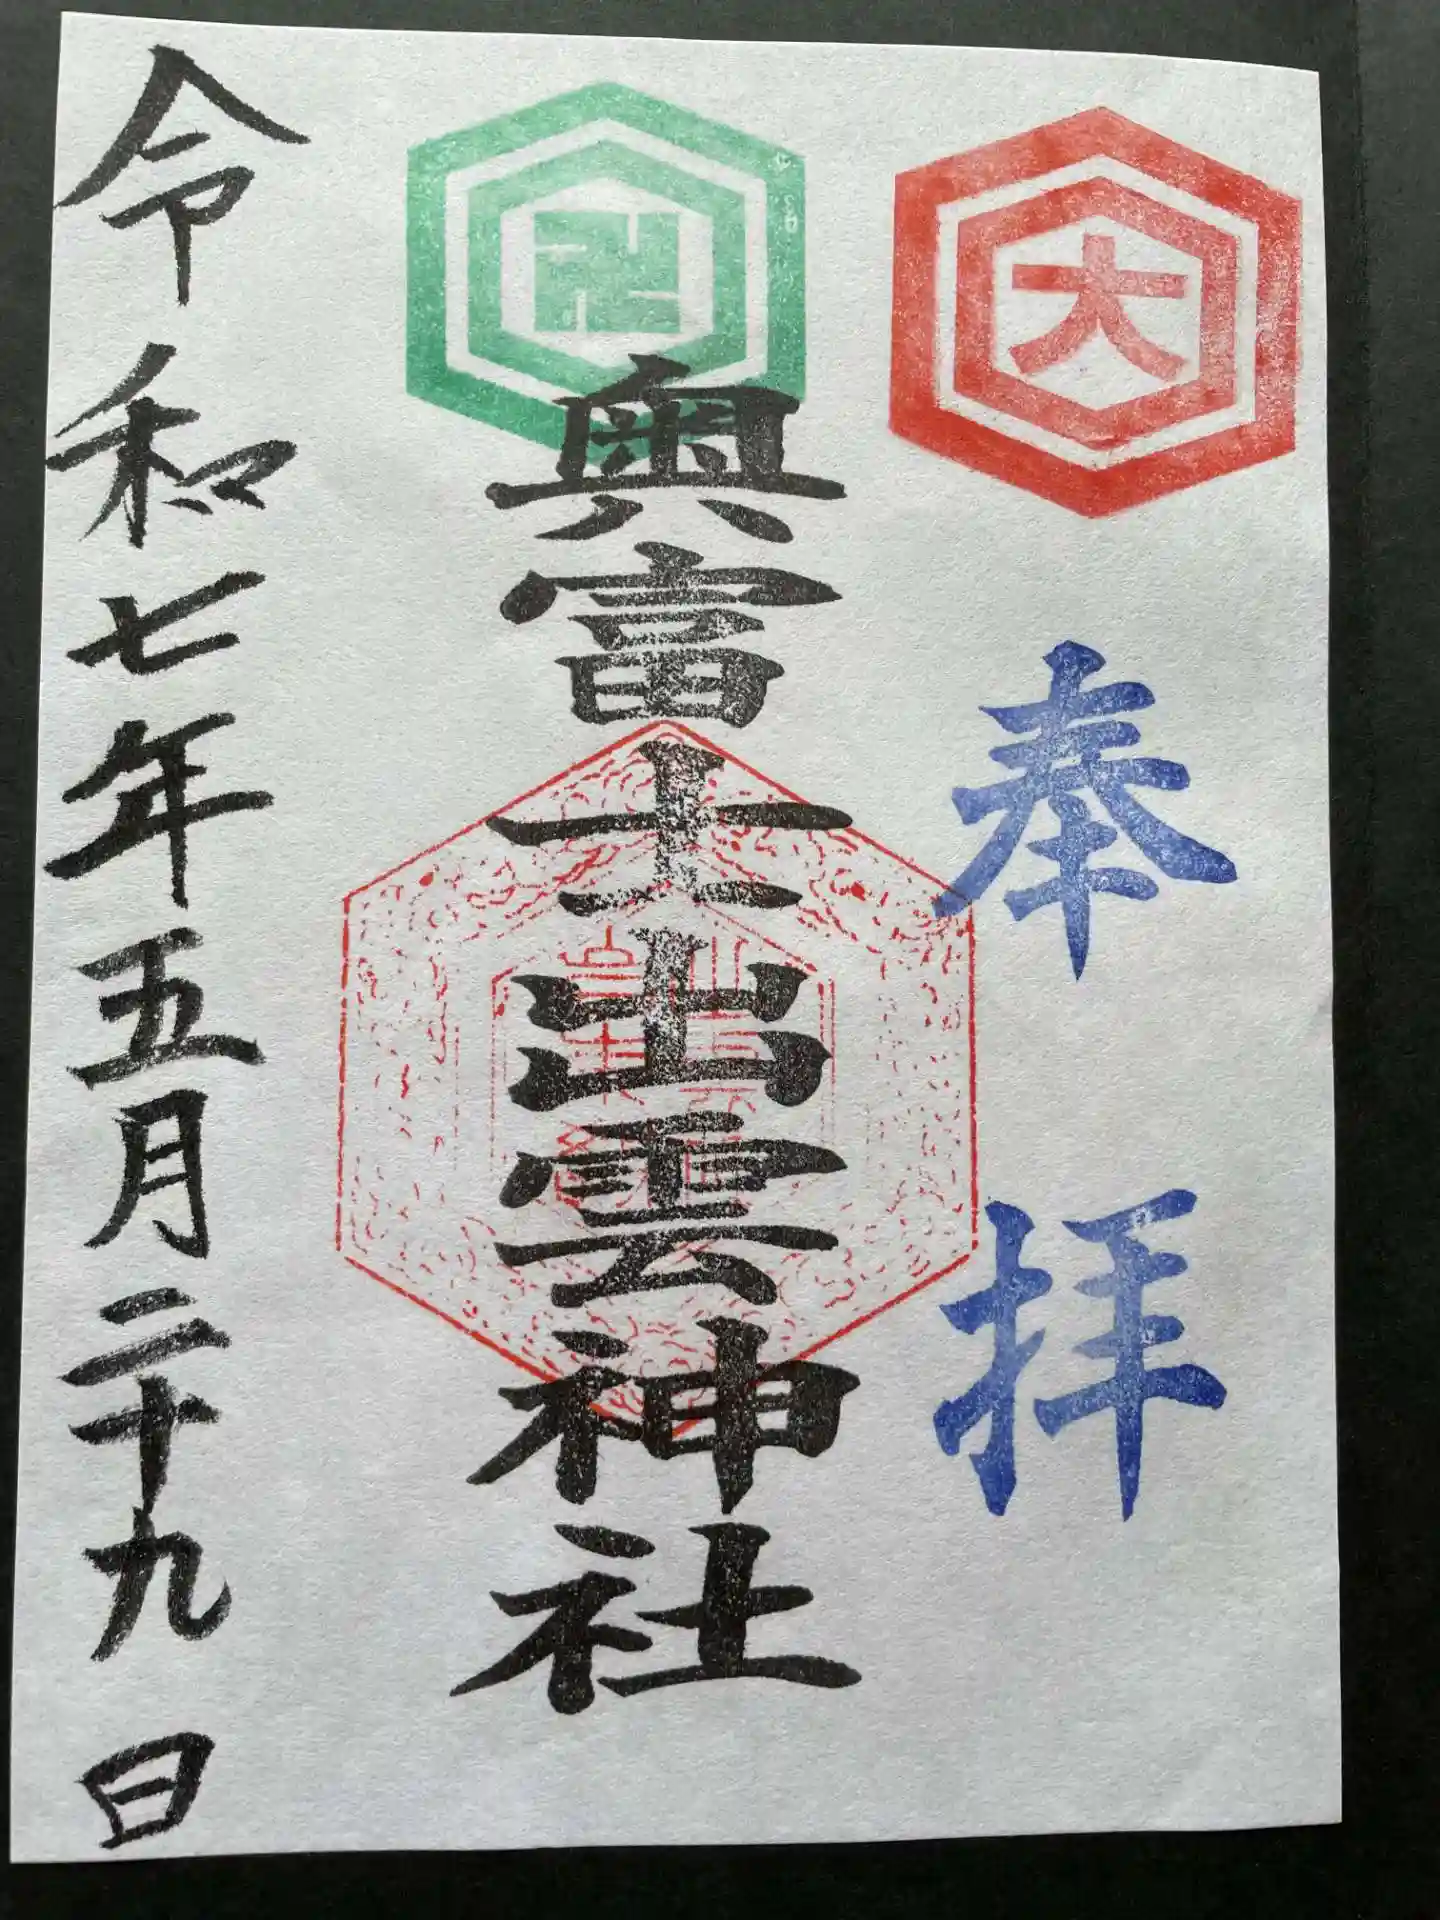 大
卍
奉拝
奥富士出雲神社
令和七年五月二十九日